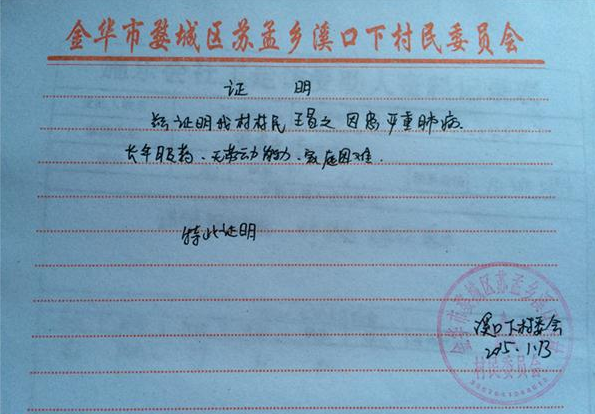 金华市婺城区苏孟乡溪口下村民委员会
证 明
兹证明我村村民王昌之因患严重肺病.
长年服药、无劳动能力、家庭困难.
特此证明
溪口下村委会
2015.1.13
金华市婺城区苏孟乡溪口下村
村民委员会